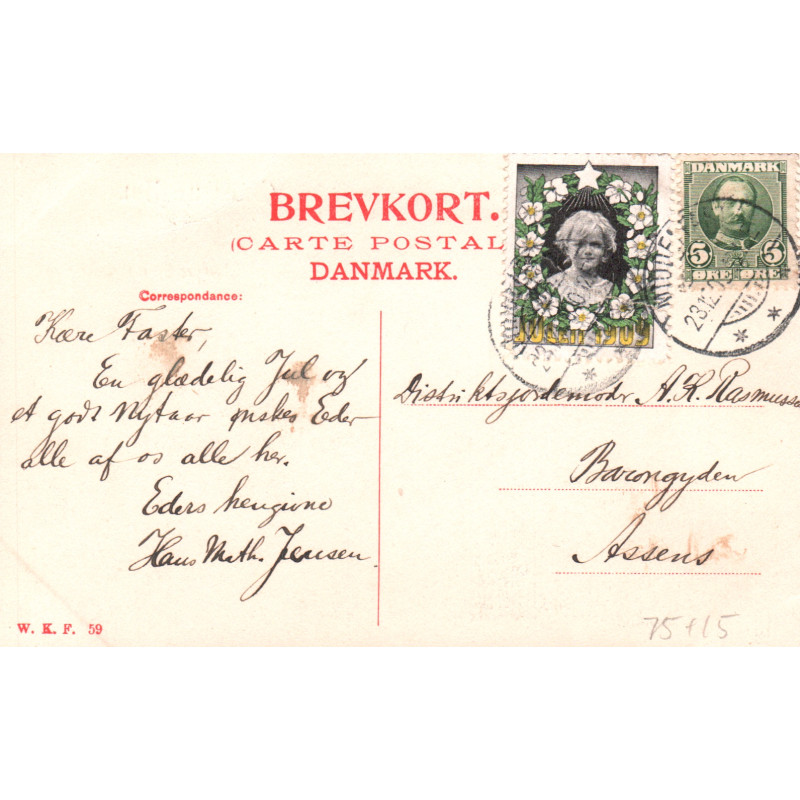 BREVKORT.
(CARTE POSTAL
DANMARK.
Correspondance:
Kære Faster,
En glædelig Jul og
et godt Nytaar ønskes Eder
alle af os alle her.
Eders hengivne
Hans Math. Jensen.
W. K. F. 59
JULEN 1909
DANMARK
5 5
ØRE ØRE
MIDDELF
23.12.0
Distriktsjordemodr A. K. Rasmussen
Barongyden
Assens
75+15